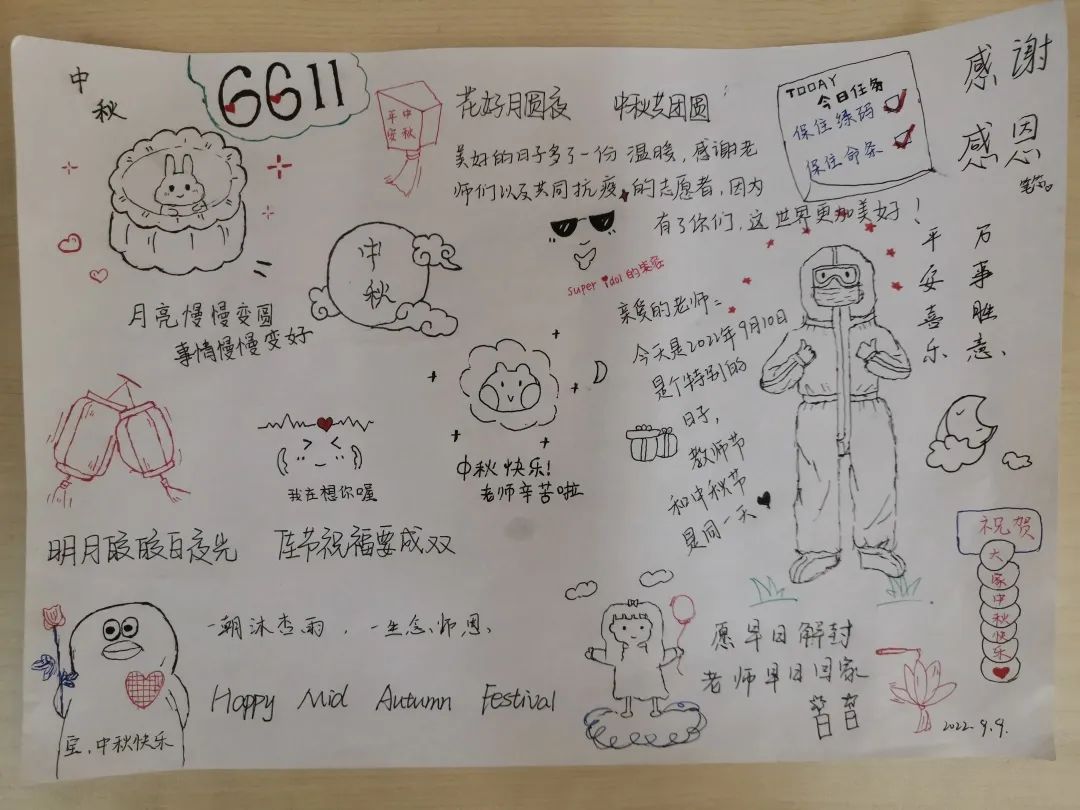 中
秋
6611
平安
中秋
花好月圆夜 中秋共团圆
美好的日子多了一份温暖,感谢老
师们以及共同抗疫的志愿者,因为
有了你们,这世界更加美好!
TODAY
今日任务
保住绿码
保住命条
感谢
感恩
笔芯
万事胜意、
平安喜乐
月亮慢慢变圆
事情慢慢变好
中秋
super idol的笑容
亲爱的老师:
今天是2022年9月10日
是个特别的
日子,
教师节
和中秋节
是同一天
我在想你喔
中秋快乐!
老师辛苦啦
明月皎皎白夜光 佳节祝福要成双
祝贺
大家中秋快乐
一朝沐杏雨,一生念师恩、
Happy Mid Autumn Festival
宝,中秋快乐
愿早日解封
老师早日回家
2022.9.9.